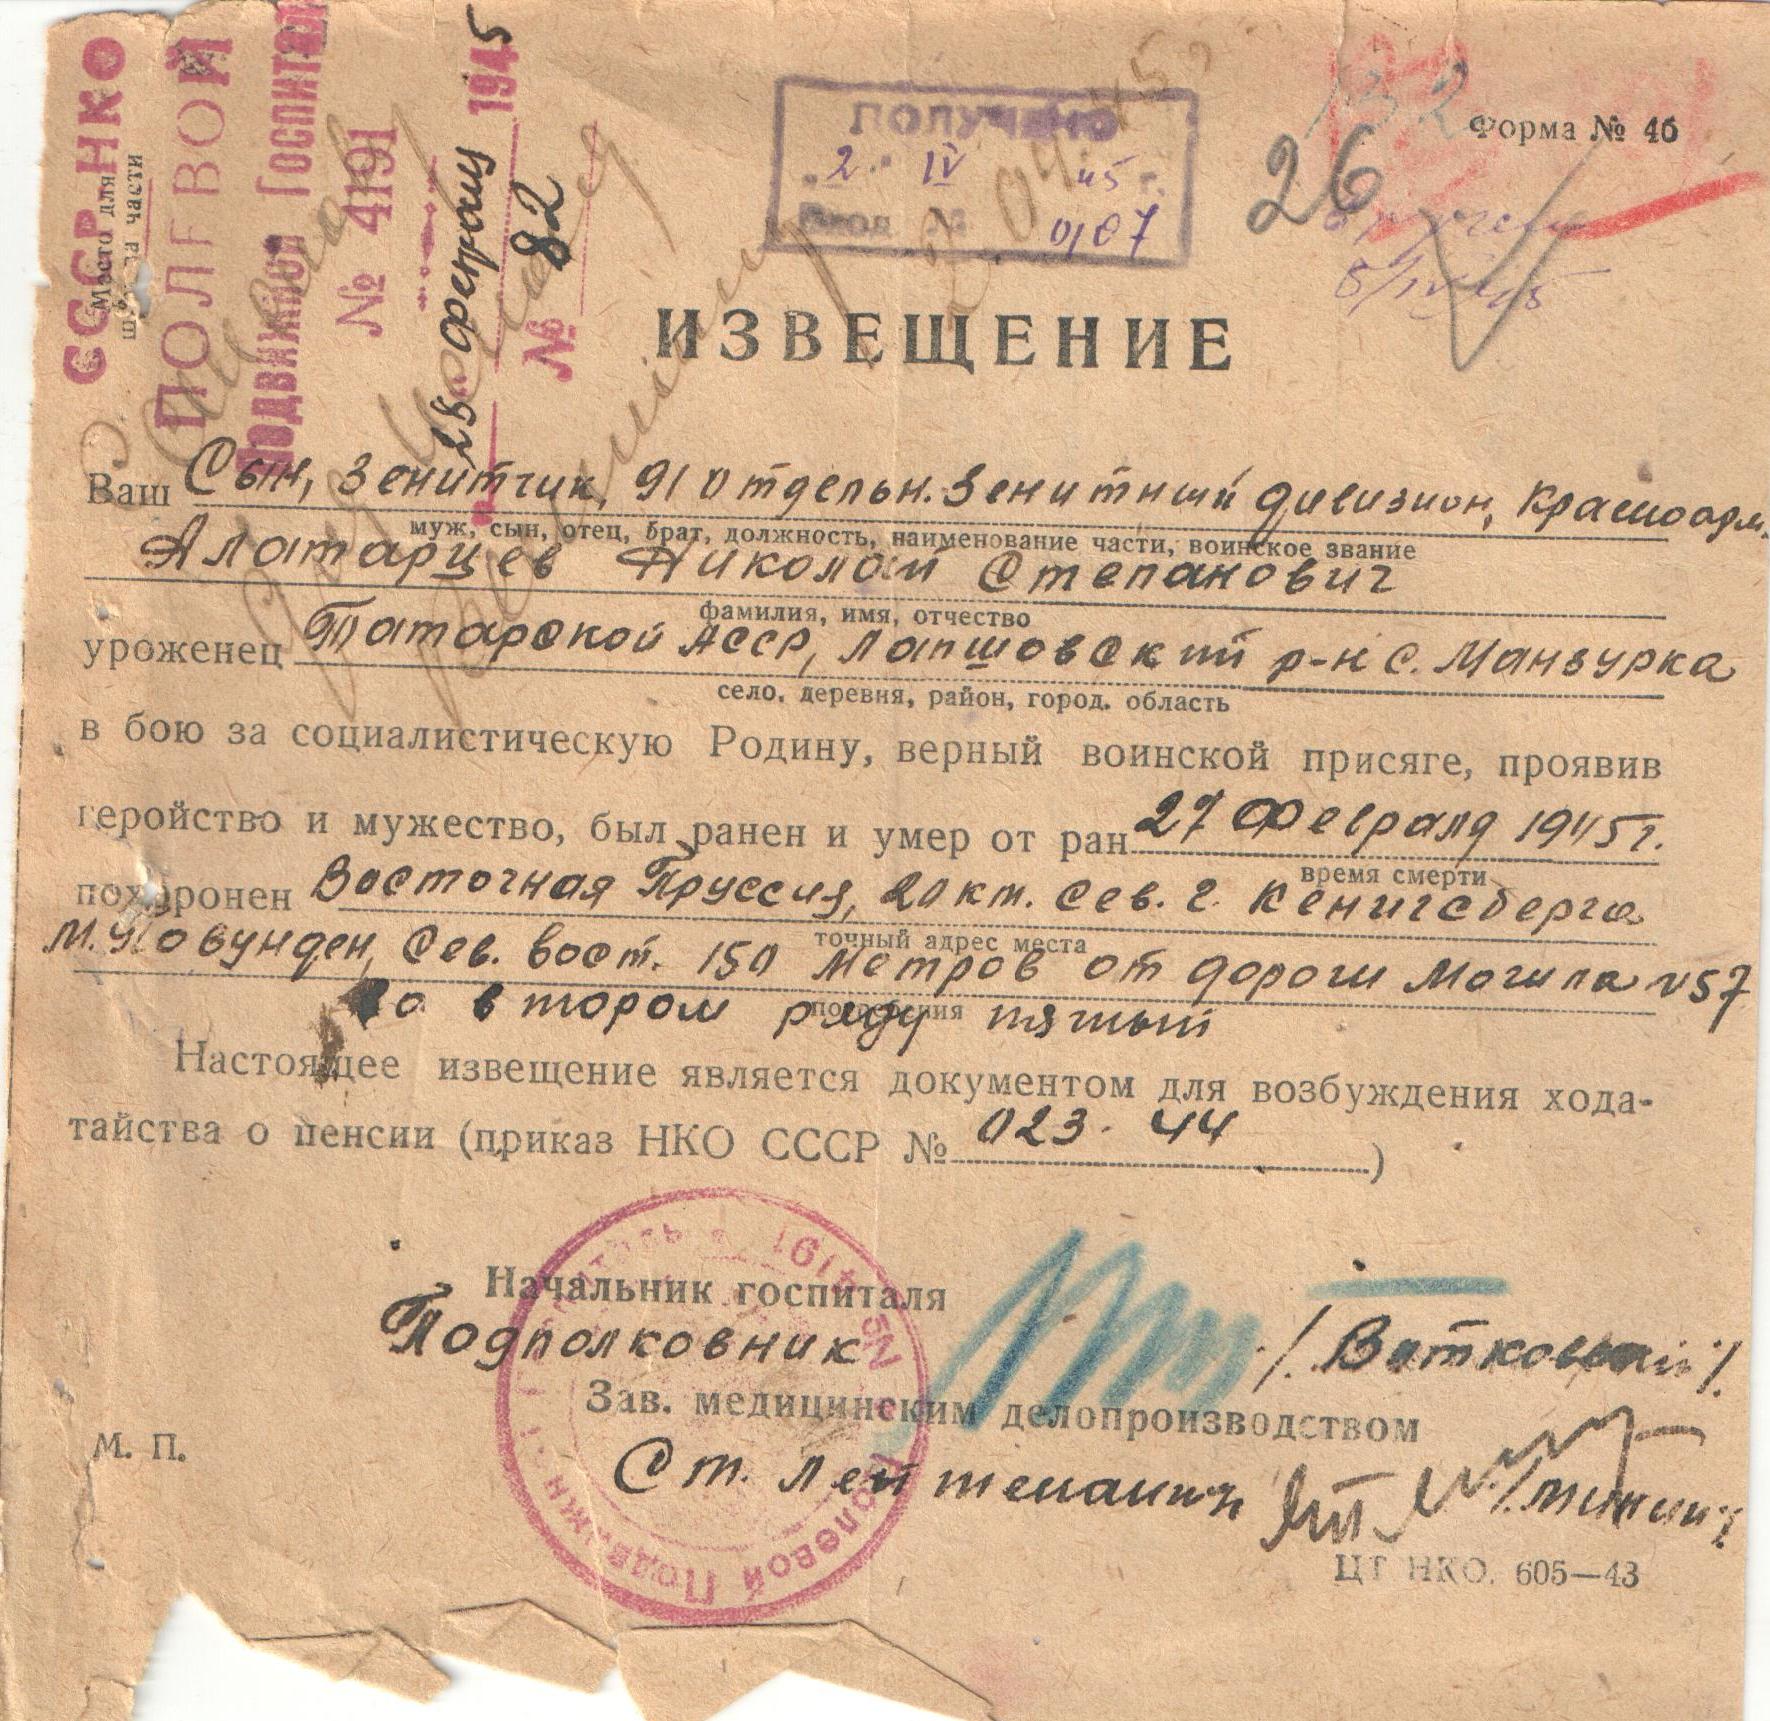 СССР НКО
Место для
штампа части
ПОЛЕВОЙ
Подвижной Госпиталь
№ 4191
28 февраля 1945
№ 82
ПОЛУЧЕНО
2 IV 45 г.
Вход. № 0107
132
Форма № 4б
26
ИЗВЕЩЕНИЕ
Ваш Сын, Зенитчик, 910 отдельн. Зенитный дивизион, Красноарм.
муж, сын, отец, брат, должность, наименование части, воинское звание
Алатарцев Николай Степанович
фамилия, имя, отчество
уроженец Татарской АССР, Лапшовский р-н с. Манзурка
село, деревня, район, город, область
в бою за социалистическую Родину, верный воинской присяге, проявив
геройство и мужество, был ранен и умер от ран 27 Февраля 1945 г.
время смерти
похоронен Восточная Пруссия, 20 км. Сев. г. Кенигсберга
точный адрес места
М. Повунден, Сев. Вост. 150 Метров от дороги Могила №57
погребения
во втором ряду пятый
Настоящее извещение является документом для возбуждения хода-
тайства о пенсии (приказ НКО СССР № 023. 44)
Начальник госпиталя
Подполковник /. Ватковский /.
Зав. медицинским делопроизводством
М. П.
Ст. Лейтенант
№ 4191
Полевой Подвижн
ЦТ НКО. 605—43